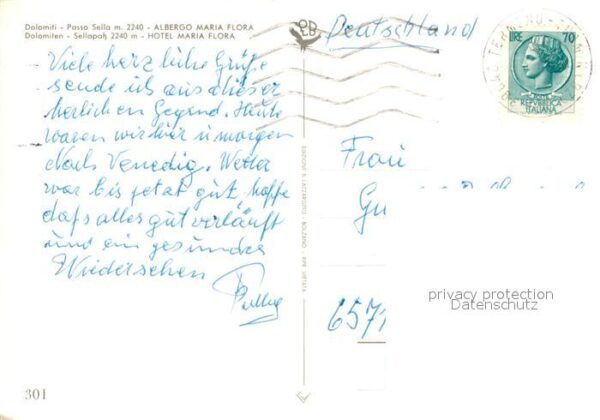 Dolomiti - Passo Sella m. 2240 - ALBERGO MARIA FLORA
Dolomiten - Sellapaß 2240 m - HOTEL MARIA FLORA
Viele herzliche Grüße
sende ich aus dieser
herrlichen Gegend. Heute
waren wir hier u morgen
nach Venedig. Wetter
war bis jetzt gut, hoffe
daß alles gut verläuft
und ein gesundes
Wiedersehen
301
Deutschland
LIRE 70
REPUBBLICA
ITALIANA
Frau
Gu
6571
privacy protection
Datenschutz